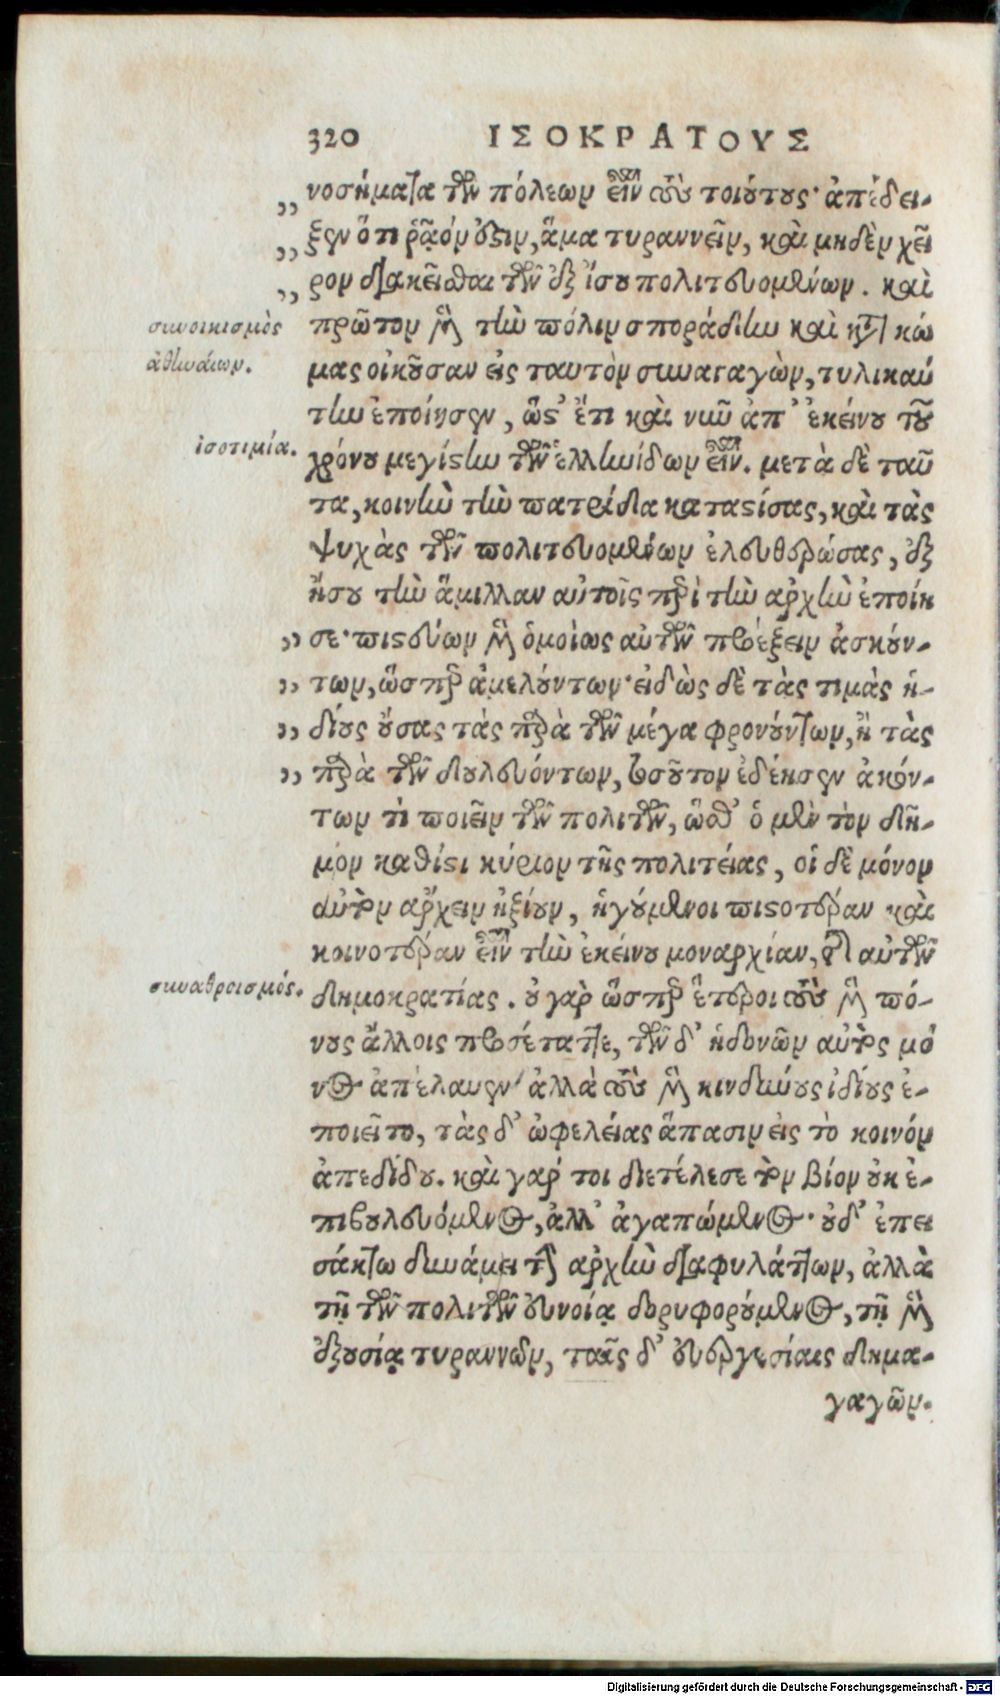 320 ΙΣΟΚΡΑΤΟΥΣ
„ νοσήματα τῶν πόλεων εἶναι τοὺς τοιούτους· ἀπέδει-
„ ξεν ὅτι ῥᾷόν ἐστιν, ἅμα τυραννεῖν, καὶ μηδὲν χεῖ
„ ρον διακεῖσθαι τῶν ἐξ ἴσου πολιτευομένων. καὶ
συνοικισμὸς
ἀθηναίων.
πρῶτον μὲν τὴν πόλιν σποράδην καὶ κατὰ κώ
μας οἰκοῦσαν εἰς ταυτὸν συναγαγὼν, τηλικαύ
την ἐποίησεν, ὥστ' ἔτι καὶ νῦν ἀπ' ἐκείνου τοῦ
ἰσοτιμία.
χρόνου μεγίστην τῶν ἑλληνίδων εἶναι. μετὰ δὲ ταῦ
τα, κοινὴν τὴν πατρίδα καταστήσας, καὶ τὰς
ψυχὰς τῶν πολιτευομένων ἐλευθερώσας, ἐξ
ἴσου τὴν ἅμιλλαν αὐτοῖς περὶ τὴν ἀρχὴν ἐποίη
„ σε· πιστεύων μὲν ὁμοίως αὐτῶν προέξειν ἀσκούν-
„ των, ὥσπερ ἀμελούντων· εἰδὼς δὲ τὰς τιμὰς ἡ-
„ δίους οὔσας τὰς παρὰ τῶν μέγα φρονούντων, ἢ τὰς
„ παρὰ τῶν δουλευόντων, τοσοῦτον ἐδέησεν ἀκόν-
των τι ποιεῖν τῶν πολιτῶν, ὥσθ' ὁ μὲν τὸν δῆ-
μον καθίστη κύριον τῆς πολιτείας, οἱ δὲ μόνον
αὐτὸν ἄρχειν ἠξίουν, ἡγούμενοι πιστοτέραν καὶ
κοινοτέραν εἶναι τὴν ἐκείνου μοναρχίαν, τῆς αὐτῶν
συναθροισμός.
δημοκρατίας. οὐ γὰρ ὥσπερ ἕτεροι τοὺς μὲν πό-
νους ἄλλοις προσέταττε, τῶν δ' ἡδονῶν αὐτὸς μό
νος ἀπέλαυεν· ἀλλὰ τοὺς μὲν κινδύνους ἰδίους ἐ-
ποιεῖτο, τὰς δ' ὠφελείας ἅπασιν εἰς τὸ κοινόν
ἀπεδίδου. καὶ γάρ τοι διετέλεσε τὸν βίον οὐκ ἐ-
πιβουλευόμενος, ἀλλ' ἀγαπώμενος· οὐδ' ἐπει
σάκτῳ δυνάμει τὴν ἀρχὴν διαφυλάττων, ἀλλὰ
τῇ τῶν πολιτῶν εὐνοίᾳ δορυφορούμενος, τῇ μὲν
ἐξουσίᾳ τυραννῶν, ταῖς δ' εὐεργεσίαις δημα-
γαγῶν.
Digitalisierung gefördert durch die Deutsche Forschungsgemeinschaft - DFG